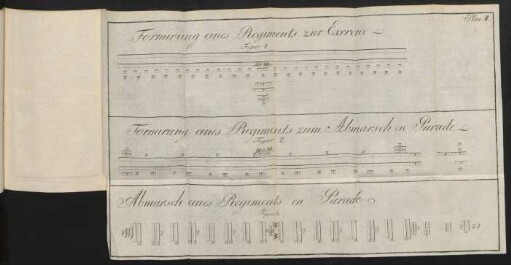 Plan I
Formirung eines Regiments zur Exercice
Figur 1
Formirung eines Regiments zum Abmarsch en Parade
Figur 2
Abmarsch eines Regiments en Parade
Figur 3